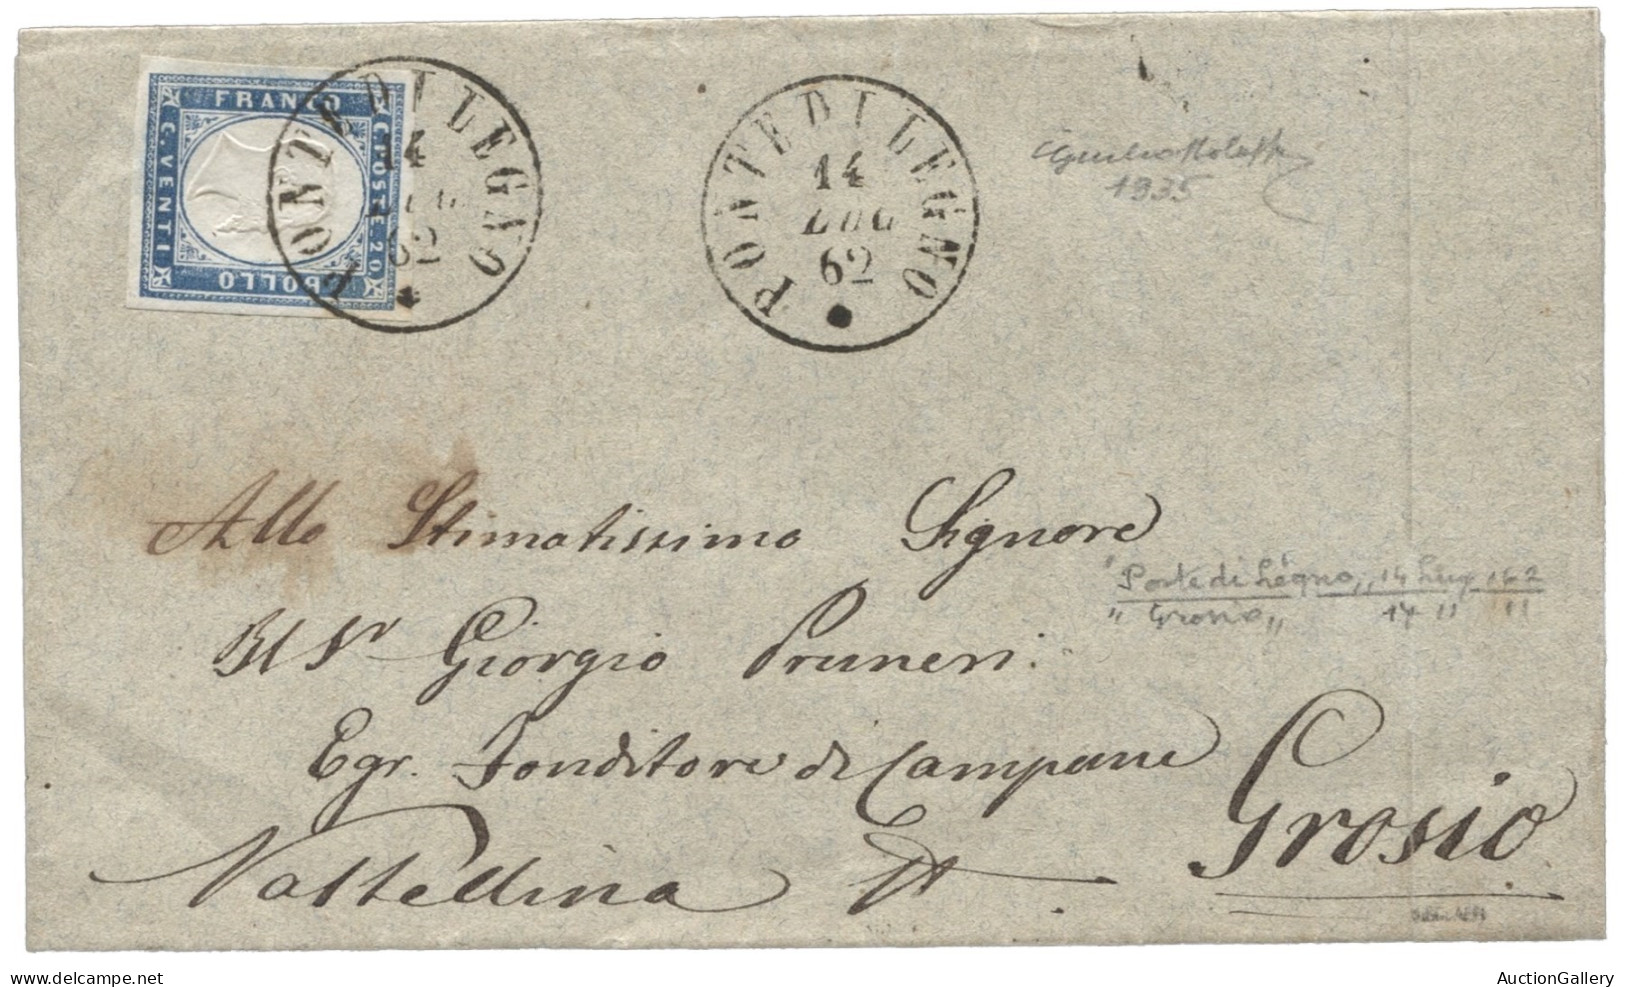 FRANCO
C. POSTE. 20
C. VENTI
BOLLO
PONTE DI LEGNO
14
LUG
62
PONTE DI LEGNO
14
LUG
62
1935
Allo Stimatissimo Signore
Il Sr Giorgio Pruneri.
Egr. Fonditore di Campane
Valtellina Grosio
"Ponte di Légno" 14 Lug 162
"Grosio" 14 11 11
AuctionGallery